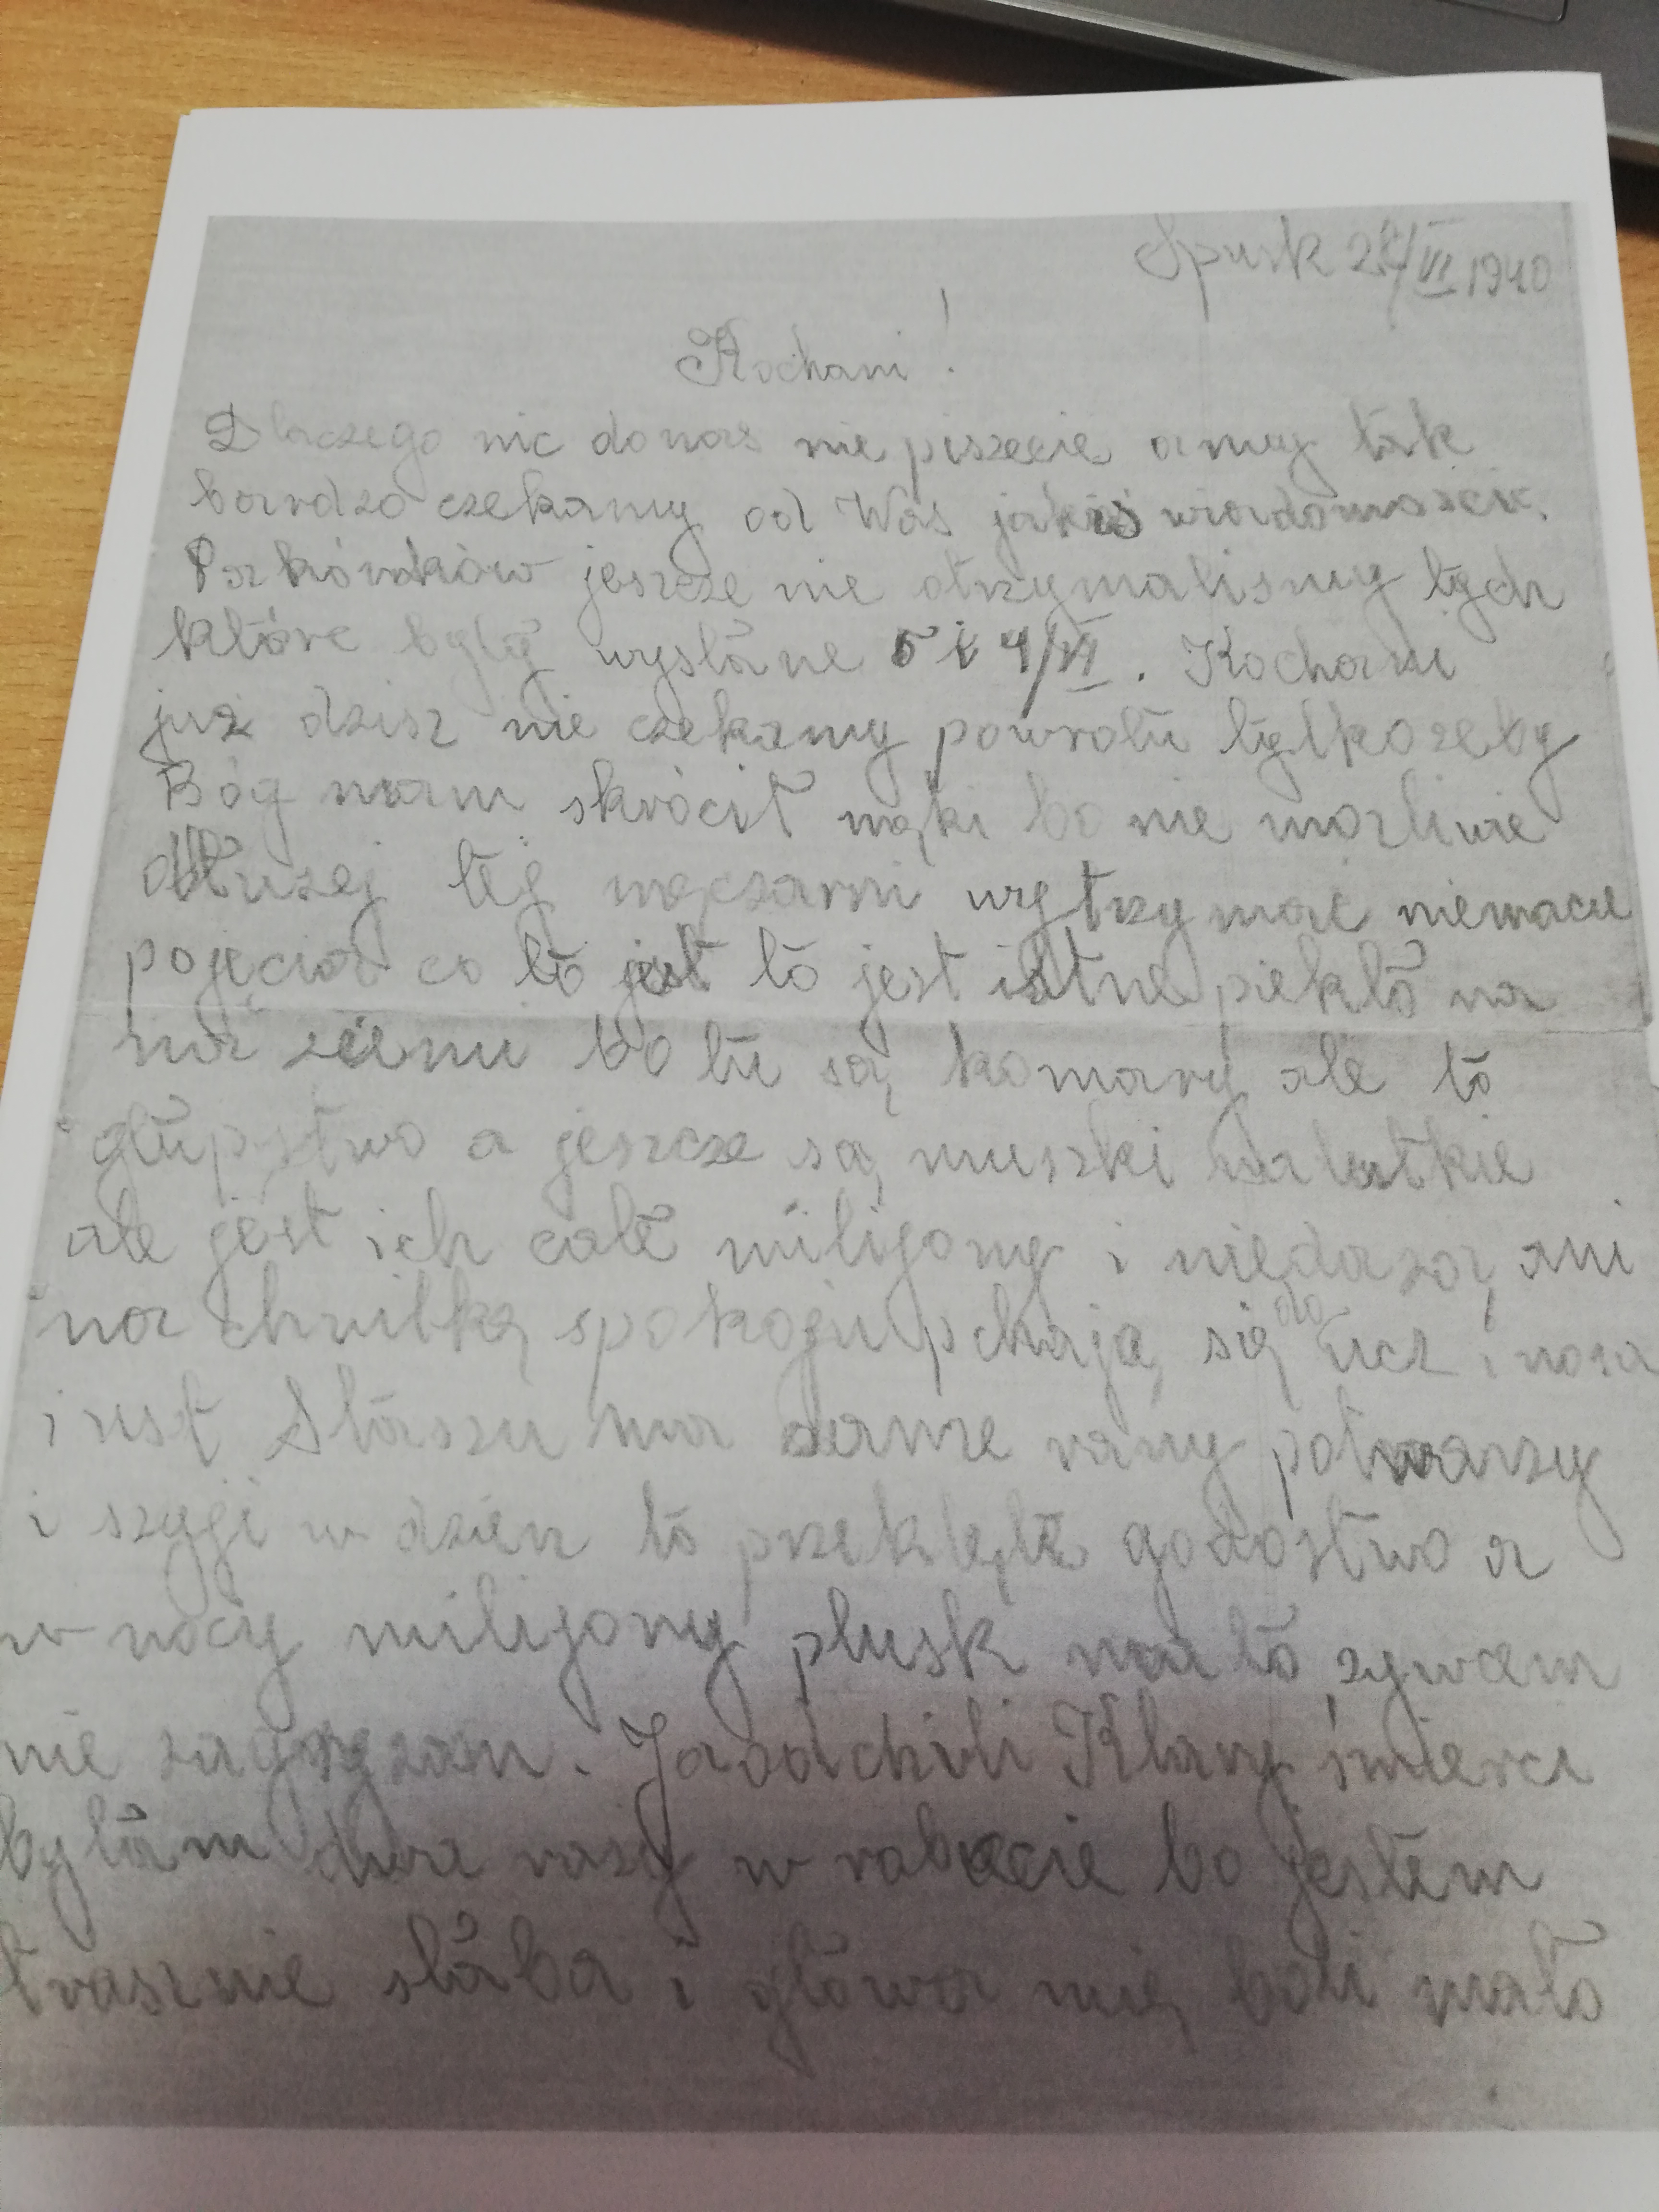 Spusk 24/VI 1940
Kochani!
Dlaczego nic donas nie piszecie a my tak
bardzo czekamy od Was jakiś wiadomości.
jeszcze nie otrzymalismy tych
które byłą wysłane 5 i 4/VI. Kochani
już dzisz nie czekamy powrotu tylko żeby
Bóg nam skrócił męki bo nie możliwie
dłużej tej męczarni wytrzymać niemacie
pojęcia co to jest to jest istne piekło na
na ziemi bo tu są komary ale to
głupstwo a jeszcze są muszki malutkie
ale jest ich całe milijony i niedazą ani
na chwilkę spokoju pchają się do ucz i nosa
i ust Staszu ma same rany potwarzy
i szyji w dzień to przeklęte gadostwo a
w nocy milijony plusk mało żywcem
nie zagryzom. Ja od chili Klary śmierci
byłam dwa razy w robocie bo jestem
trasznie słaba i głowa mię boli mało